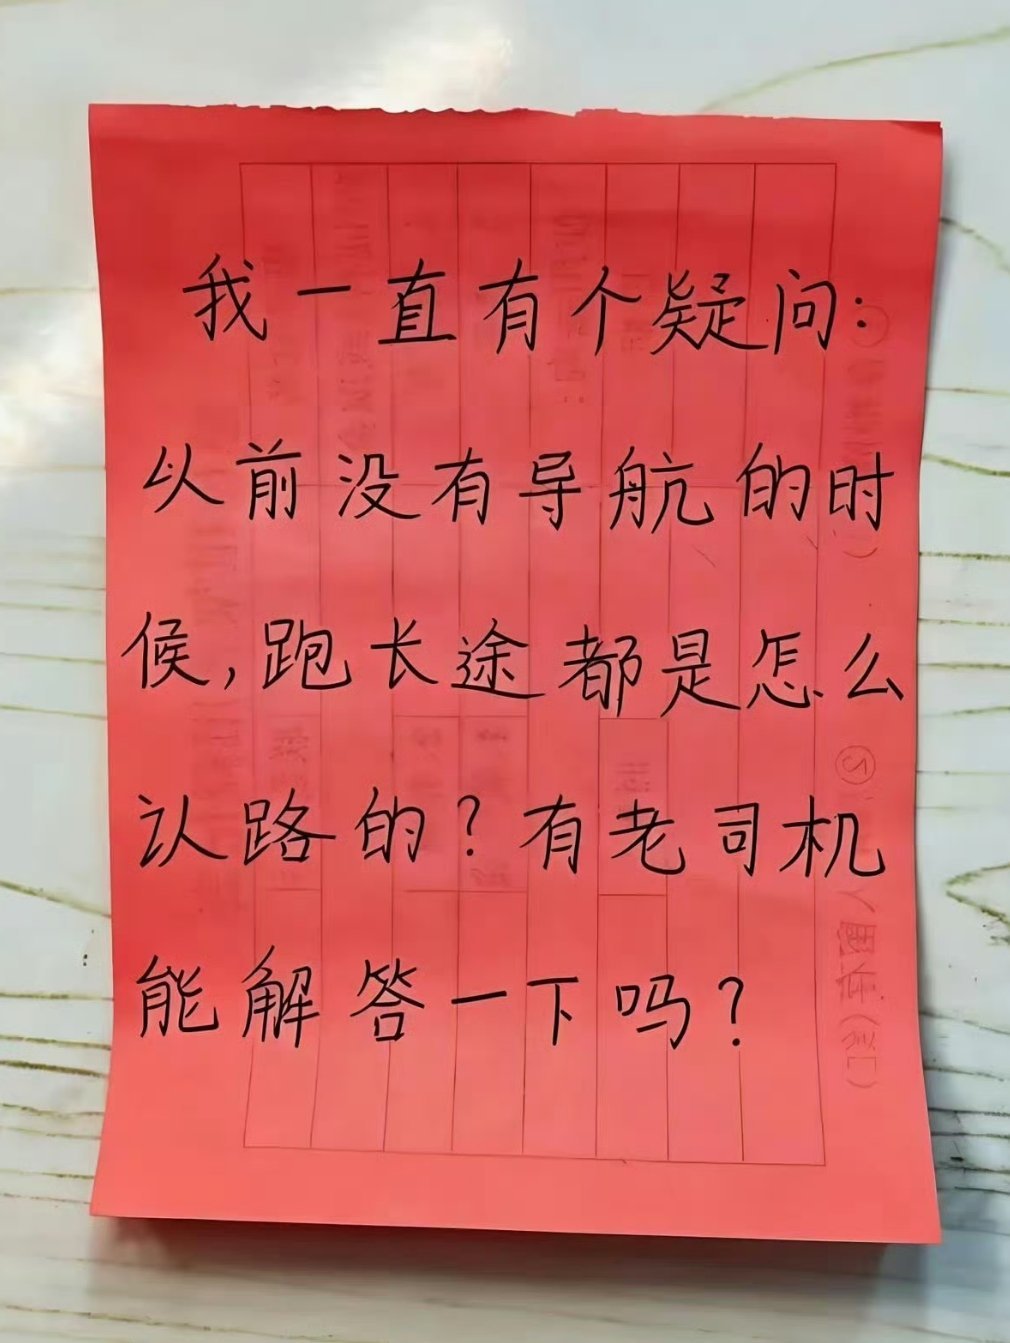 我一直有个疑问:
以前没有导航的时
候,跑长途都是怎么
认路的?有老司机
能解答一下吗?